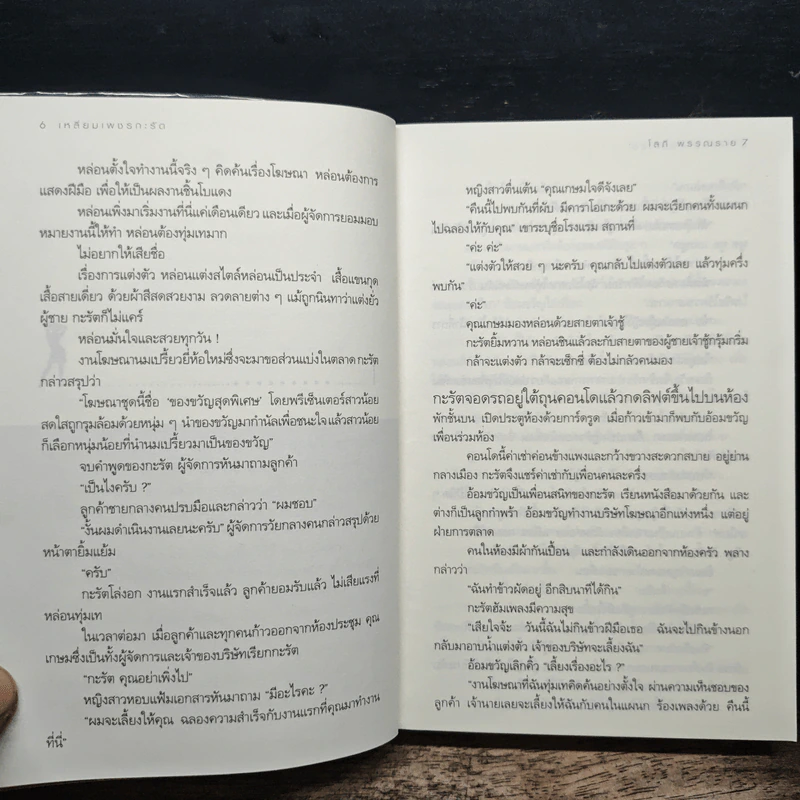 6 เหลี่ยมเพชรกะรัต
หล่อนตั้งใจทำงานนี้จริง ๆ คิดค้นเรื่องโฆษณา หล่อนต้องการ
แสดงฝีมือ เพื่อให้เป็นผลงานชิ้นโบแดง
หล่อนเพิ่งมาเริ่มงานที่นี่แค่เดือนเดียว และเมื่อผู้จัดการยอมมอบ
หมายงานนี้ให้ทำ หล่อนต้องทุ่มเทมาก
ไม่อยากให้เสียชื่อ
เรื่องการแต่งตัว หล่อนแต่งสไตล์หล่อนเป็นประจำ เสื้อแขนกุด
เสื้อสายเดี่ยว ด้วยผ้าสีสดสวยงาม ลวดลายต่าง ๆ แม้ถูกนินทาว่าแต่งยั่ว
ผู้ชาย กะรัตก็ไม่แคร์
หล่อนมั่นใจและสวยทุกวัน !
งานโฆษณานมเปรี้ยวยี่ห้อใหม่ซึ่งจะมาขอส่วนแบ่งในตลาด กะรัต
กล่าวสรุปว่า
“โฆษณาชุดนี้ชื่อ ‘ของขวัญสุดพิเศษ’ โดยพรีเซ็นเตอร์สาวน้อย
สดใสถูกรุมล้อมด้วยหนุ่ม ๆ นำของขวัญมากำนัลเพื่อชนะใจ แล้วสาวน้อย
ก็เลือกหนุ่มน้อยที่นำนมเปรี้ยวมาเป็นของขวัญ”
จบคำพูดของกะรัต ผู้จัดการหันมาถามลูกค้า
“เป็นไงครับ ?”
ลูกค้าชายกลางคนปรบมือและกล่าวว่า “ผมชอบ”
“งั้นผมดำเนินงานเลยนะครับ” ผู้จัดการวัยกลางคนกล่าวสรุปด้วย
หน้าตายิ้มแย้ม
“ครับ”
กะรัตโล่งอก งานแรกสำเร็จแล้ว ลูกค้ายอมรับแล้ว ไม่เสียแรงที่
หล่อนทุ่มเท
ในเวลาต่อมา เมื่อลูกค้าและทุกคนก้าวออกจากห้องประชุม คุณ
เกษมซึ่งเป็นทั้งผู้จัดการและเจ้าของบริษัทเรียกกะรัต
“กะรัต คุณอย่าเพิ่งไป”
หญิงสาวหอบแฟ้มเอกสารหันมาถาม “มีอะไรคะ ?”
“ผมจะเลี้ยงให้คุณ ฉลองความสำเร็จกับงานแรกที่คุณมาทำงาน
ที่นี่”
โสภี พรรณราย 7
หญิงสาวตื่นเต้น “คุณเกษมใจดีจังเลย”
“คืนนี้ไปพบกันที่ผับ มีคาราโอเกะด้วย ผมจะเรียกคนทั้งแผนก
ไปฉลองให้กับคุณ” เขาระบุชื่อโรงแรม สถานที่
“ค่ะ ค่ะ”
“แต่งตัวให้สวย ๆ นะครับ คุณกลับไปแต่งตัวเลย แล้วทุ่มครึ่ง
พบกัน”
“ค่ะ”
คุณเกษมมองหล่อนด้วยสายตาเจ้าชู้
กะรัตยิ้มหวาน หล่อนชินแล้วละกับสายตาของผู้ชายเจ้าชู้กรุ้มกริ่ม
กล้าจะแต่งตัว กล้าจะเซ็กซี่ ต้องไม่กลัวคนมอง
กะรัตจอดรถอยู่ใต้ถุนคอนโดแล้วกดลิฟต์ขึ้นไปบนห้อง
พักชั้นบน เปิดประตูห้องด้วยการ์ดรูด เมื่อก้าวเข้ามาก็พบกับอ้อมขวัญ
เพื่อนร่วมห้อง
คอนโดนี้ค่าเช่าค่อนข้างแพงและกว้างขวางสะดวกสบาย อยู่ย่าน
กลางเมือง กะรัตจึงแชร์ค่าเช่ากับเพื่อนคนละครึ่ง
อ้อมขวัญเป็นเพื่อนสนิทของกะรัต เรียนหนังสือมาด้วยกัน และ
ต่างก็เป็นลูกกำพร้า อ้อมขวัญทำงานบริษัทโฆษณาอีกแห่งหนึ่ง แต่อยู่
ฝ่ายการตลาด
คนในห้องมีผ้ากันเปื้อน และกำลังเดินออกจากห้องครัว พลาง
กล่าวว่า
“ฉันทำข้าวผัดอยู่ อีกสิบนาทีได้กิน”
กะรัตฮัมเพลงมีความสุข
“เสียใจจ้ะ วันนี้ฉันไม่กินข้าวฝีมือเธอ ฉันจะไปกินข้างนอก
กลับมาอาบน้ำแต่งตัว เจ้าของบริษัทจะเลี้ยงฉัน”
อ้อมขวัญเลิกคิ้ว “เลี้ยงเรื่องอะไร ?”
“งานโฆษณาที่ฉันทุ่มเทคิดค้นอย่างตั้งใจ ผ่านความเห็นชอบของ
ลูกค้า เจ้านายเลยจะเลี้ยงให้ฉันกับคนในแผนก ร้องเพลงด้วย คืนนี้